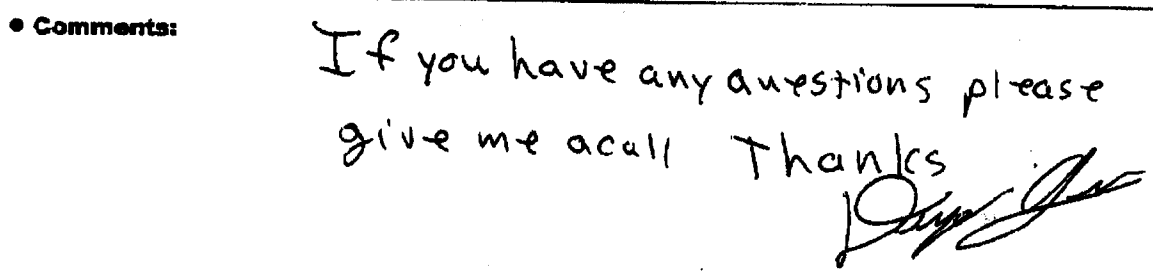 • Comments:
If you have any questions please
give me a call Thanks